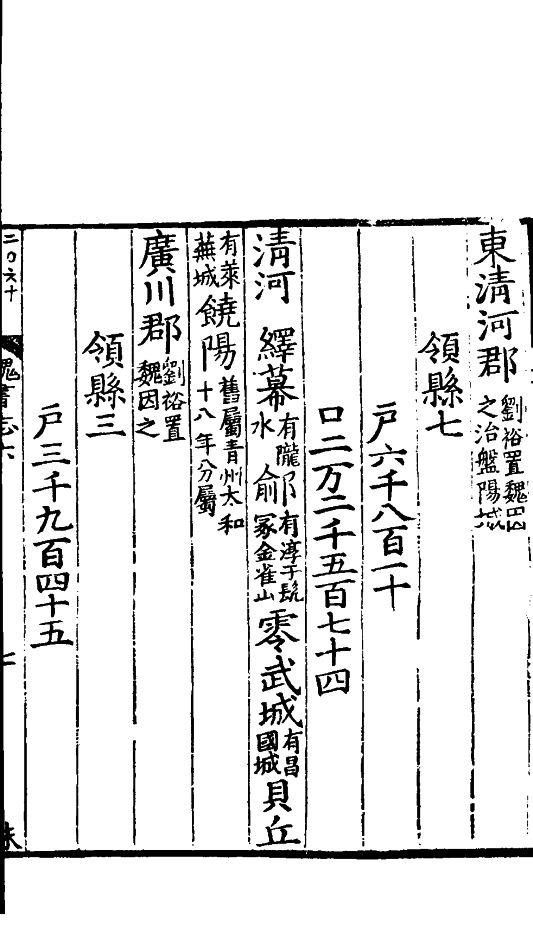 東清河郡劉裕置魏因之治盤陽城
領縣七
戸六千八百一十
口二万二千五百七十四
清河 繹幕有隴水 鄃有淳于髡冢金雀山零武城有昌國城貝丘
有萊蕪城饒陽舊屬青州太和十八年分屬
廣川郡劉裕置魏因之
領縣三
戸三千九百四十五
二〇六十 魏書志六 七